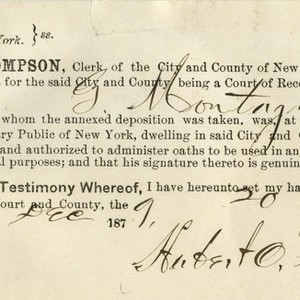 York. } ss.
OMPSON, Clerk of the City and County of New
s for the said City and County, being a Court of Reco
G Montag
whom the annexed deposition was taken, was, at
ary Public of New York, dwelling in said City and
and authorized to administer oaths to be used in an
al purposes; and that his signature thereto is genuin
Testimony Whereof, I have hereunto set my ha
ourt and County, the 20
Dec 1879,
Hubert O.